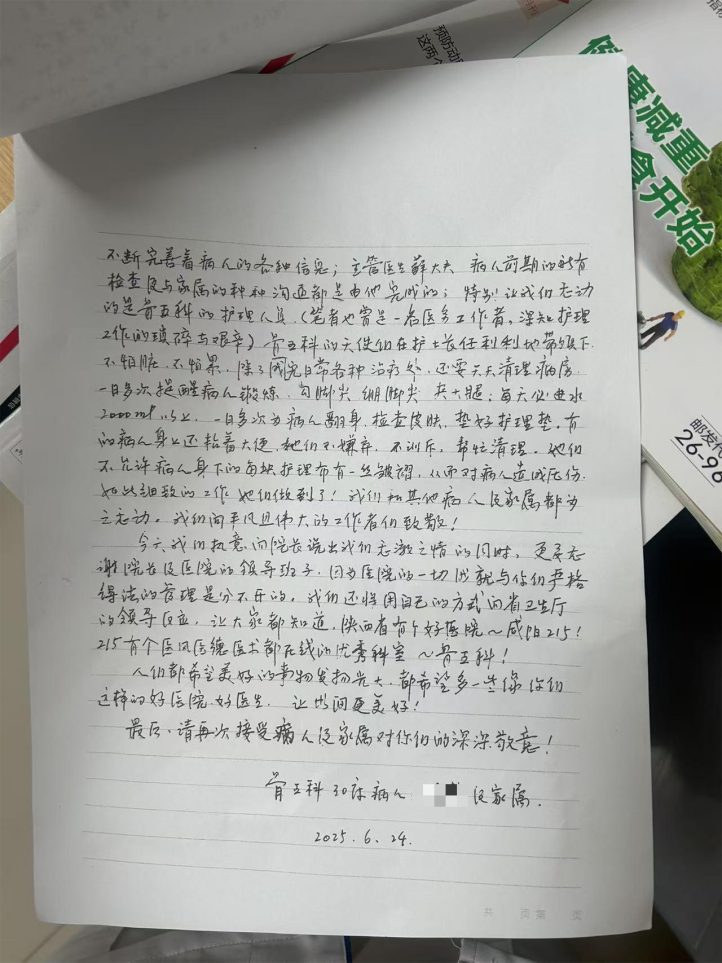 预防动
这两个
健康减重
食开始
邮发代
26-96
不断完善着病人的各种信息；主管医生薛大夫 病人前期的所有
检查及与家属的种种沟通都是由他完成的；特别让我们感动
的是骨五科的护理人员（笔者也曾是一名医务工作者，深知护理
工作的琐碎与艰辛）骨五科的天使们在护士长任利利地带领下
不怕脏、不怕累，除了日常各种治疗外，还要天天清理病房
一日多次提醒病人锻炼，勾脚尖 绷脚尖 夹大腿；每天饮水
2000ml以上，一日多次为病人翻身，检查皮肤，垫好护理垫，有
的病人身上还粘着大便，她们不嫌弃，不训斥，帮忙清理。她们
不允许病人身下的每块护理布有一丝皱褶，从而对病人造成压伤，
如此细致的工作她们做到了！我们和其他病人及家属都为
之感动。我们向平凡且伟大的工作者们致敬！
今天我们执意向院长说出我们感激之情的同时，更要感
谢院长及医院的领导班子，因为医院的一切成就与你们严格
得法的管理是分不开的，我们还将用自己的方式向省卫生厅
的领导反应，让大家都知道，陕西省有个好医院～咸阳215！
215有个医风医德医术都在线的优秀科室～骨五科！
人们都希望美好的事物发扬光大，都希望多一些像你们
这样的好医院、好医生，让世间更美好！
最后，请再次接受病人及家属对你们的深深敬意！
骨五科30床病人 及家属.
2025.6.24.
共 页第 页